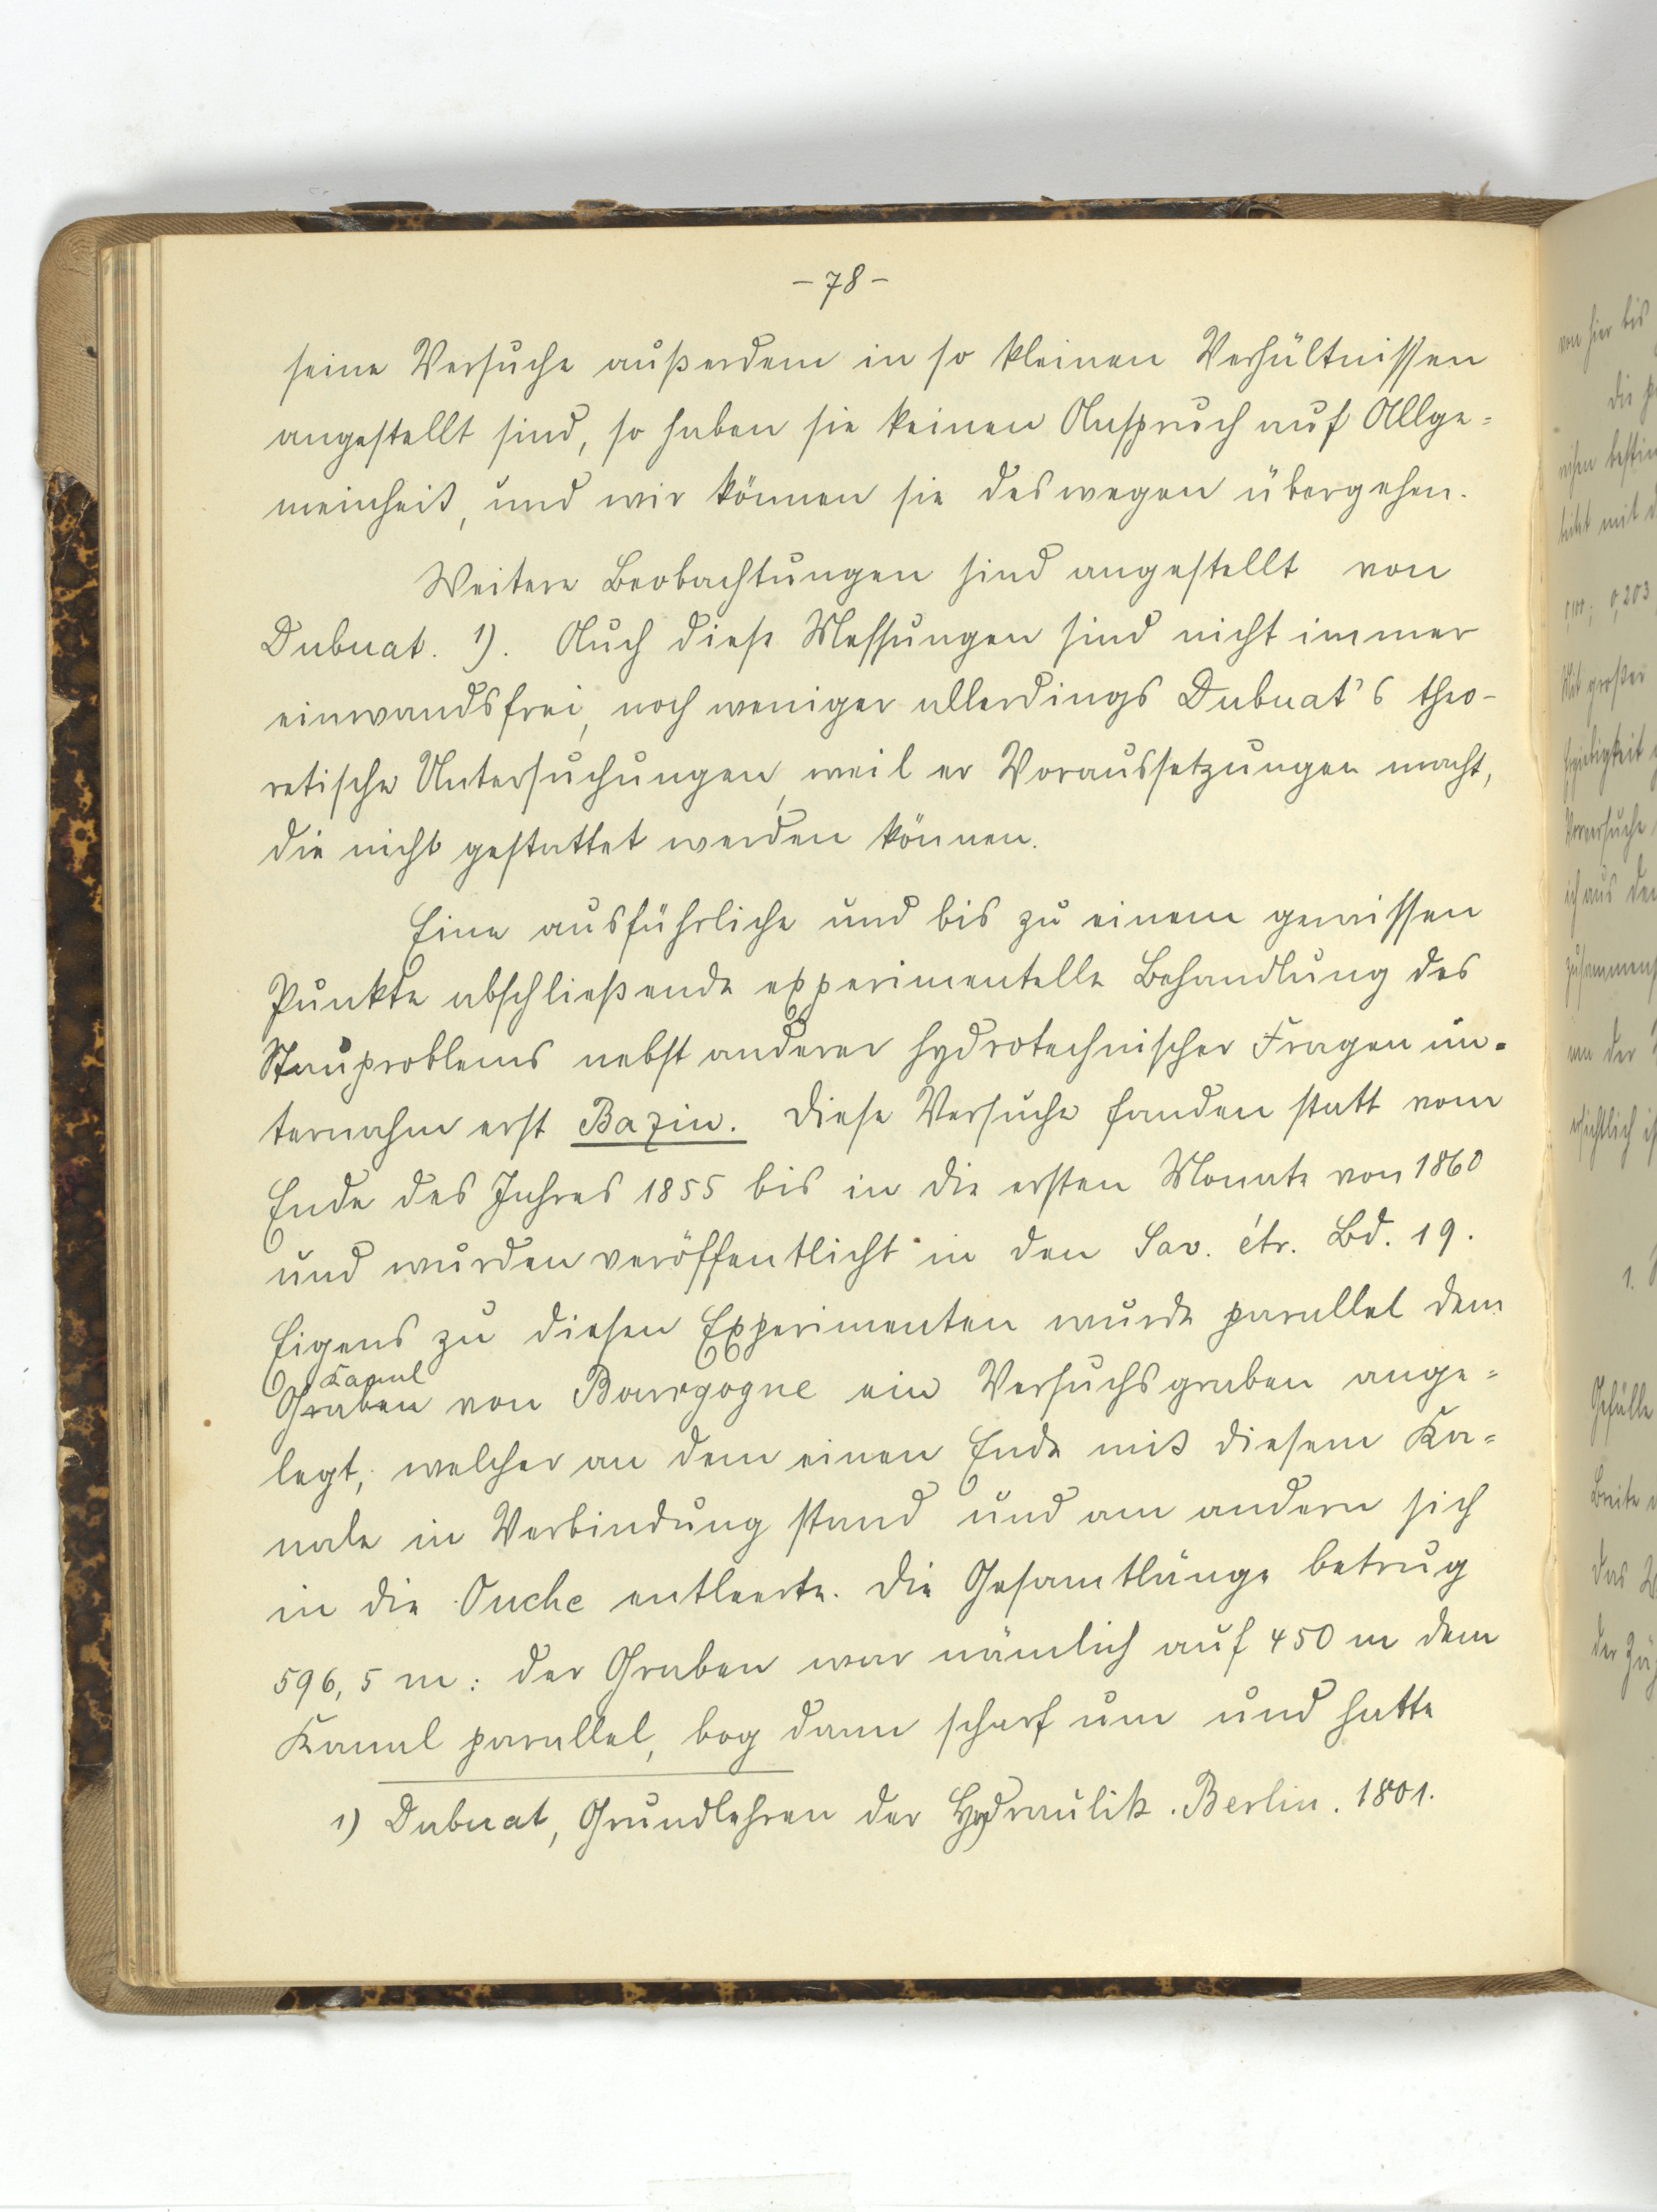 - 78 -
seine Versuche außerdem in so kleinen Verhältnissen
angestellt sind, so haben sie keinen Anspruch auf Allge=
meinheit, und wir können sie deswegen übergehen.
Weitere Beobachtungen sind angestellt von
Dubuat. 1). Auch diese Messungen sind nicht immer
einwandsfrei, noch weniger allerdings Dubuat's theo-
retische Untersuchungen, weil er Voraussetzungen macht,
die nicht gestattet werden können.
Eine ausführliche und bis zu einem gewissen
Punkte abschließende experimentelle Behandlung des
Stauproblems nebst anderer hydrotechnischer Fragen un=
ternahm erst Bazin. Diese Versuche fanden statt vom
Ende des Jahres 1855 bis in die ersten Monate von 1860
und wurden veröffentlicht in den Sav. étr. Bd. 19.
Eigens zu diesen Experimenten wurde parallel dem
Kanal
Graben von Bourgogne ein Versuchsgraben ange=
legt, welcher an dem einen Ende mit diesem Ka=
nale in Verbindung stand und am andern sich
in die Ouche entleerte. Die Gesamtlänge betrug
596,5 m: der Graben war nämlich auf 450 m dem
Kanal parallel, bog dann scharf um und hatte
1) Dubuat, Grundlehren der Hydraulik. Berlin. 1801.
von hier bis
die
mit d
0,203
Mit großer
Vorversuche
ich aus den
zusammen
der
1.
Gefälle
Breite
das
der